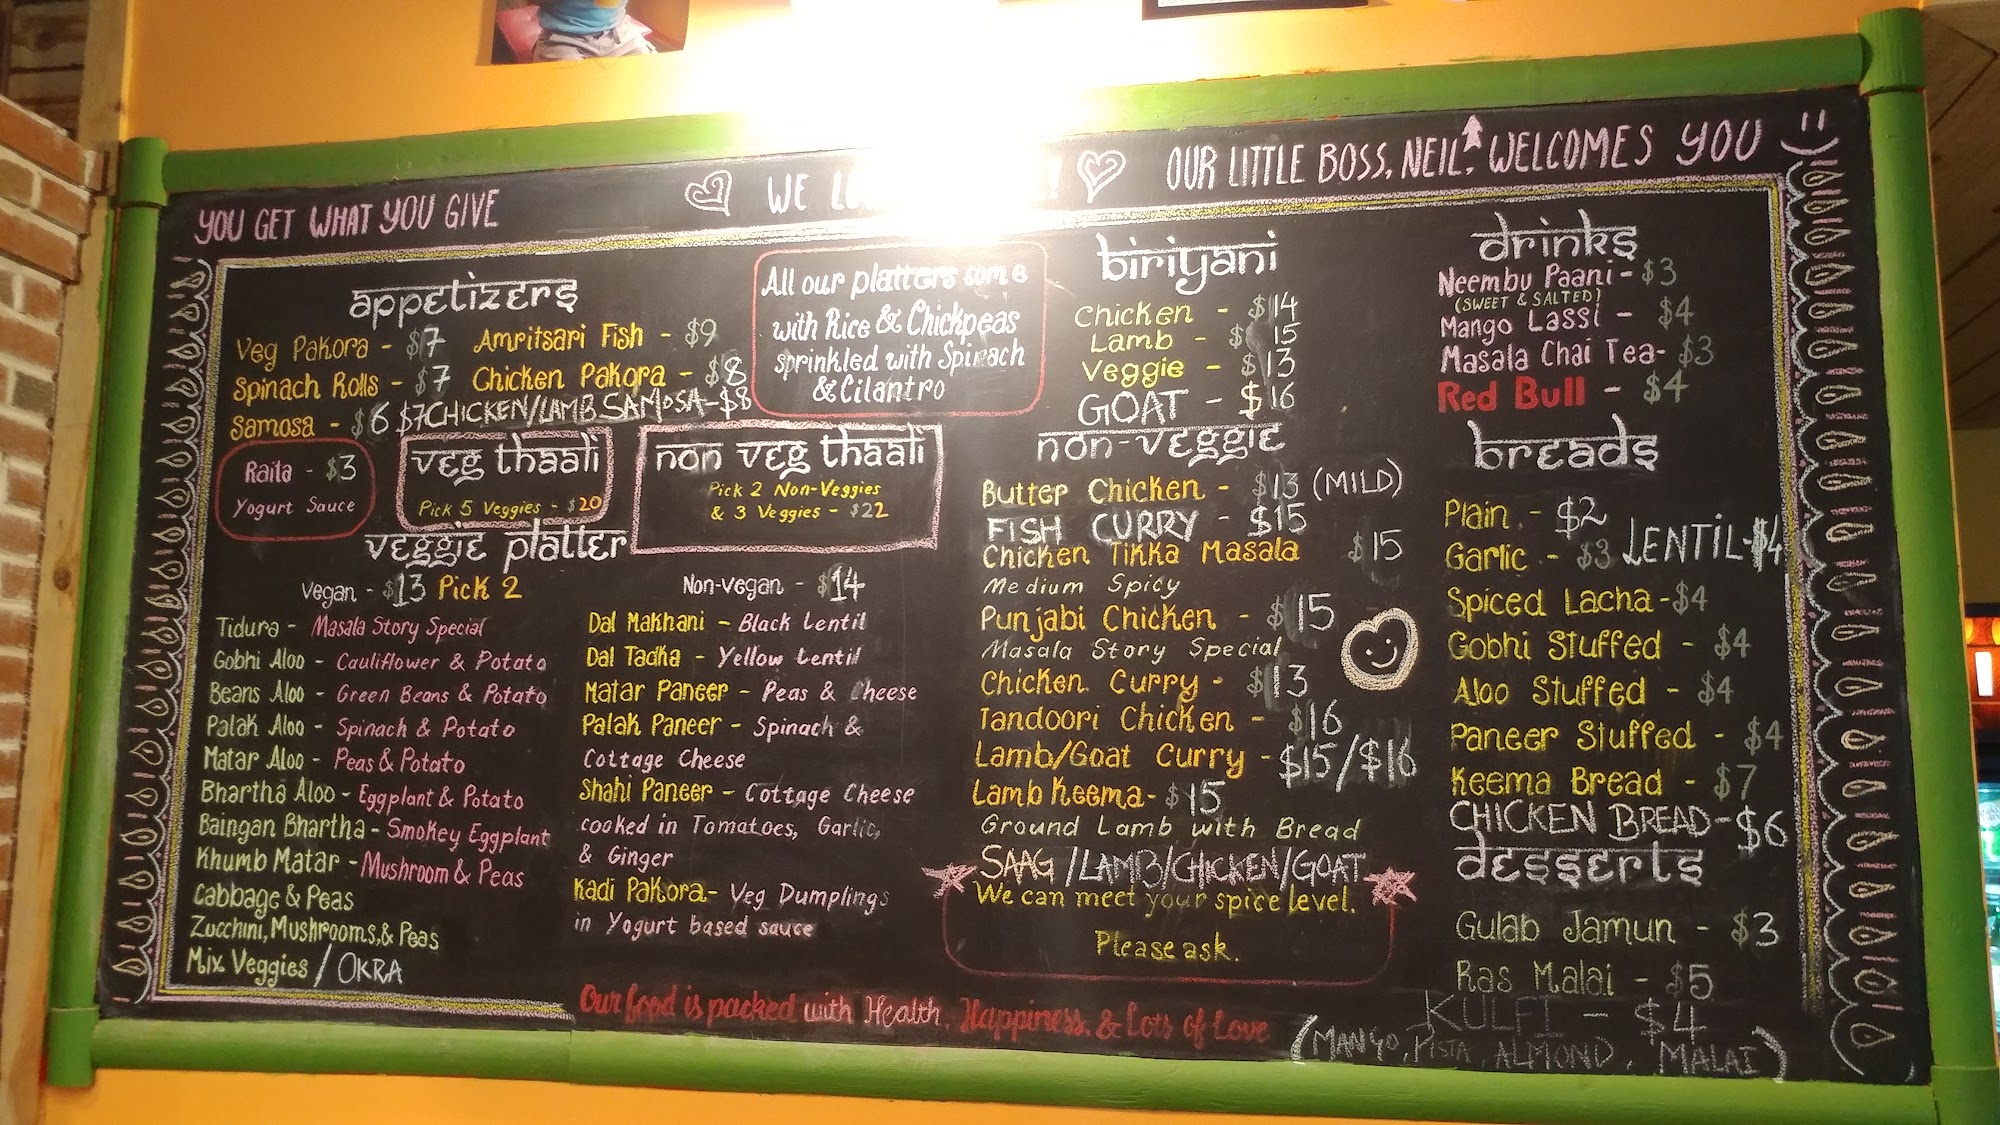 YOU GET WHAT YOU GIVE
WE
OUR LITTLE BOSS, NEIL, WELCOMES YOU
appetizers
Veg Pakora - $7
Amritsari Fish - $9
Spinach Rolls - $7
Chicken Pakora - $8
Samosa - $6 $7 CHICKEN/LAMB SAMOSA - $8
All our platters come
with Rice & Chickpeas
sprinkled with Spinach
& Cilantro
Raita - $3
Yogurt Sauce
veg thaali
Pick 5 Veggies - $20
non veg thaali
Pick 2 Non-Veggies
& 3 Veggies - $22
veggie platter
Vegan - $13 Pick 2
Tidura - Masala Story Special
Gobhi Aloo - Cauliflower & Potato
Beans Aloo - Green Beans & Potato
Palak Aloo - Spinach & Potato
Matar Aloo - Peas & Potato
Bhartha Aloo - Eggplant & Potato
Baingan Bhartha - Smokey Eggplant
Khumb Matar - Mushroom & Peas
Cabbage & Peas
Zucchini, Mushrooms, & Peas
Mix Veggies / OKRA
Non-vegan - $14
Dal Makhani - Black Lentil
Dal Tadka - Yellow Lentil
Matar Paneer - Peas & Cheese
Palak Paneer - Spinach &
Cottage Cheese
Shahi Paneer - Cottage Cheese
cooked in Tomatoes, Garlic,
& Ginger
Kadi Pakora - Veg Dumplings
in Yogurt based sauce
biriyani
Chicken - $14
Lamb - $15
Veggie - $13
GOAT - $16
non-veggie
Butter Chicken - $13 (MILD)
FISH CURRY - $15
Chicken Tikka Masala $15
Medium Spicy
Punjabi Chicken - $15
Masala Story Special
Chicken Curry - $13
Tandoori Chicken - $16
Lamb/Goat Curry - $15/$16
Lamb Keema - $15
Ground Lamb with Bread
SAAG/LAMB/CHICKEN/GOAT
We can meet your spice level.
Please ask.
drinks
Neembu Paani - $3
(SWEET & SALTED)
Mango Lassi - $4
Masala Chai Tea - $3
Red Bull - $4
breads
Plain - $2
Garlic - $3 LENTIL - $4
Spiced Lacha - $4
Gobhi Stuffed - $4
Aloo Stuffed - $4
Paneer Stuffed - $4
Keema Bread - $7
CHICKEN BREAD - $6
desserts
Gulab Jamun - $3
Ras Malai - $5
KULFI - $4
(MANGO, PISTA, ALMOND, MALAI)
Our food is packed with Health, Happiness, & Lots of Love